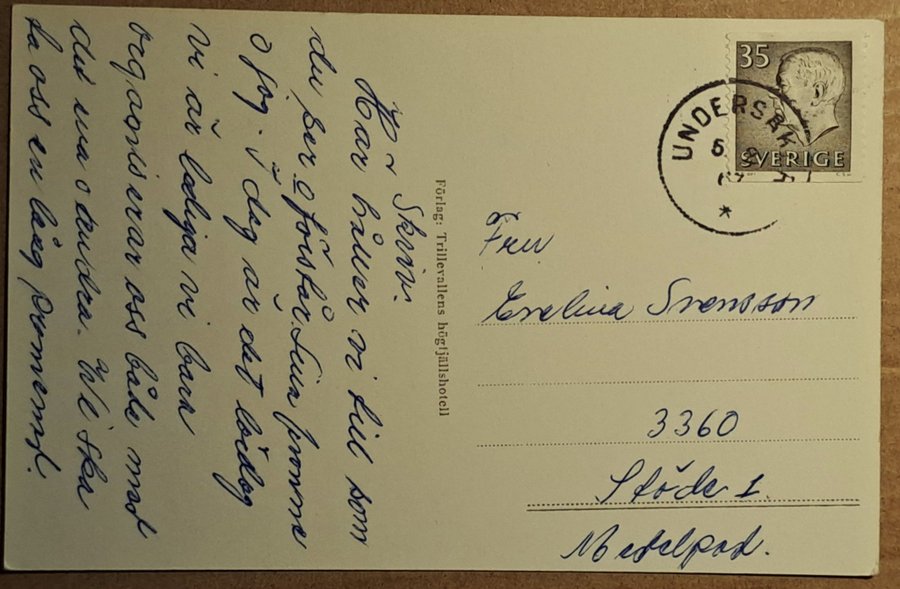 Skriv!
Här håller vi till som
du ser o förstår. Fina promre
o fjog. I dag är det lördag
vi är lediga vi bara
organiserar oss både med
det ena o andra. Vi ska
ta oss en lång promenad.
Förlag: Trillevallens högfjällshotell
35
SVERIGE
UNDERSÅK
5
Fru
Evelina Svensson
3360
Stöde 1.
Medelpad.